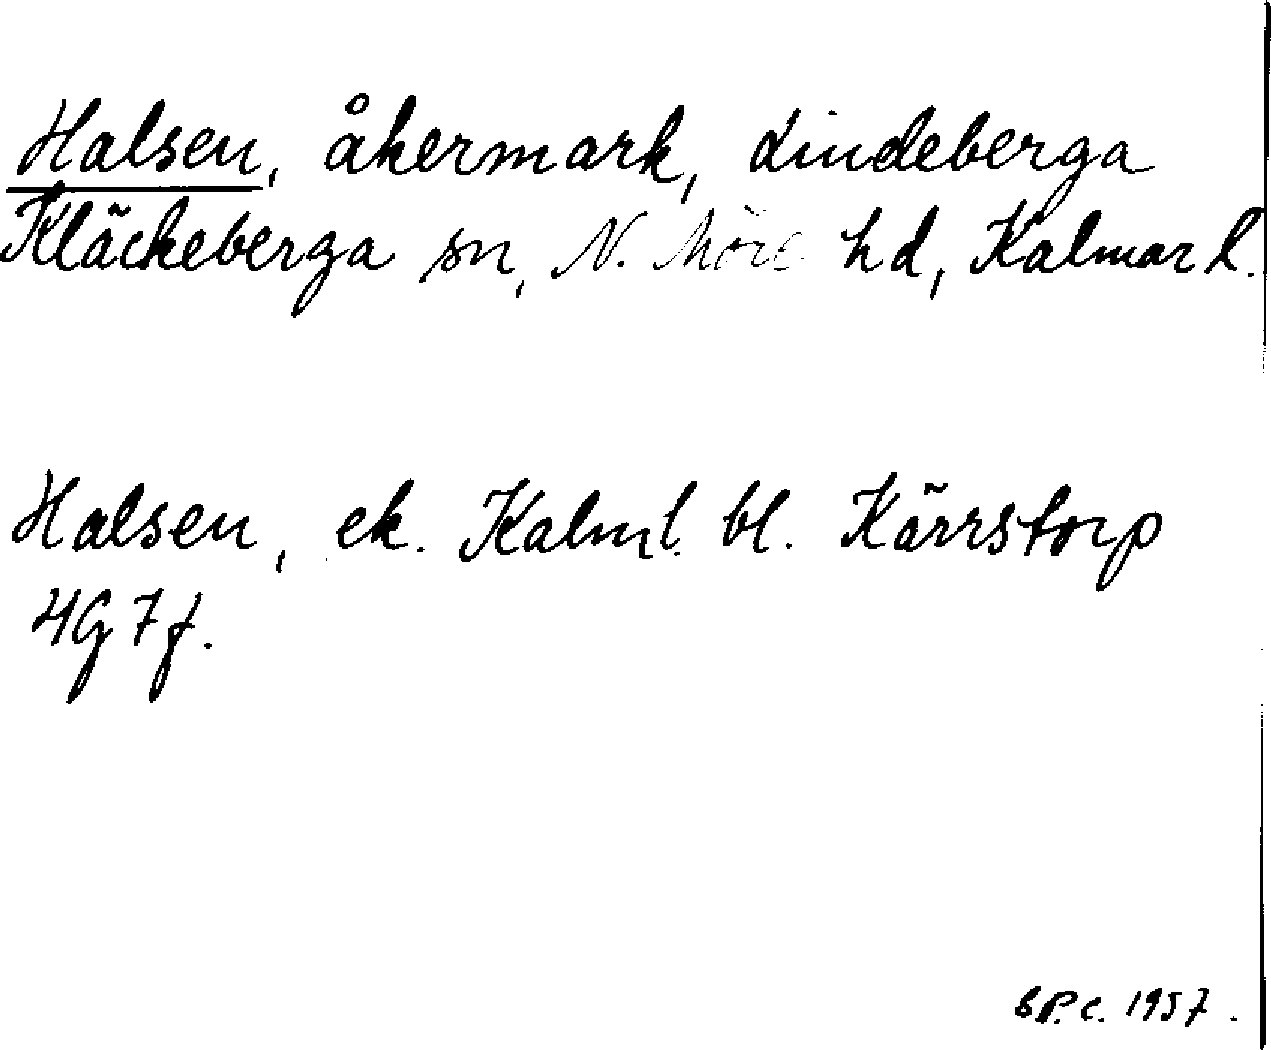 Halsen, åkermark, Lindeberga
Kläckeberga sn, N. Möre hd, Kalmar l.
Halsen, ek. Kalm l. bl. Kärrstorp
4G 7f.
B.P.C. 1957.